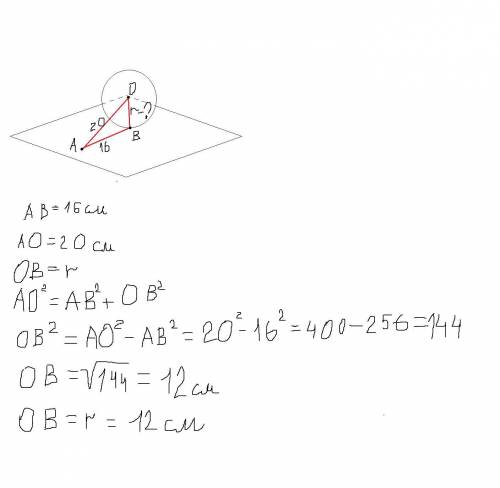 O
20
r-?
A
16
B
AB=16см
AO=20см
OB=r
AO²=AB²+OB²
OB²=AO²-AB²=20²-16²=400-256=144
OB=√144=12см
OB=r=12см